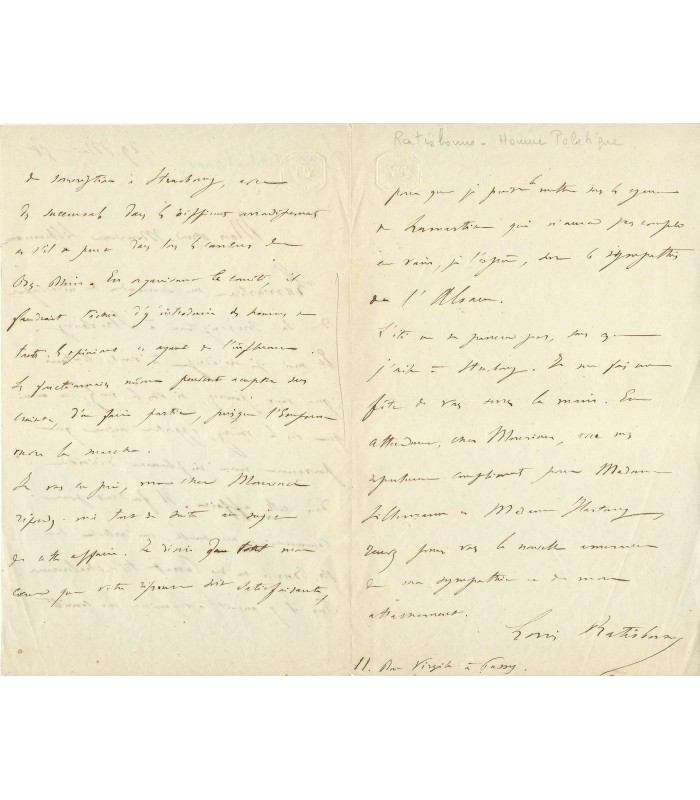 Ratisbonne - Homme Politique
de souscription à Strasbourg, avec
des succursales dans les différents arrondissements
et s'il se peut dans tous les cantons du
Bas-Rhin. En organisant le comité, il
faudrait tâcher d'y introduire des hommes de
toutes les opinions et ayant de l'influence.
Les fonctionnaires même peuvent accepter sans
crainte, d'en faire partie, puisque l'Empereur
ouvre la marche.
Je vous en prie, mon cher Monsieur
répondez-moi tout de suite au sujet
de cette affaire. Je désire de tout mon
coeur que votre réponse soit satisfaisante,
pour que je puisse la mettre sous les yeux
de Lamartine qui n'aura pas compté
en vain, je l'espère, sur les sympathies
de l'Alsace.
L'été ne se passera pas, sans que
j'aille à Strasbourg. Je me fais une
fête de vous serrer la main. En
attendant, cher Monsieur, avec mes
respectueux compliments pour Madame
et Madame
recevez pour vous la nouvelle assurance
de ma sympathie et de mon
attachement.
Louis Ratisbonne
11. Rue Virgile à Passy.